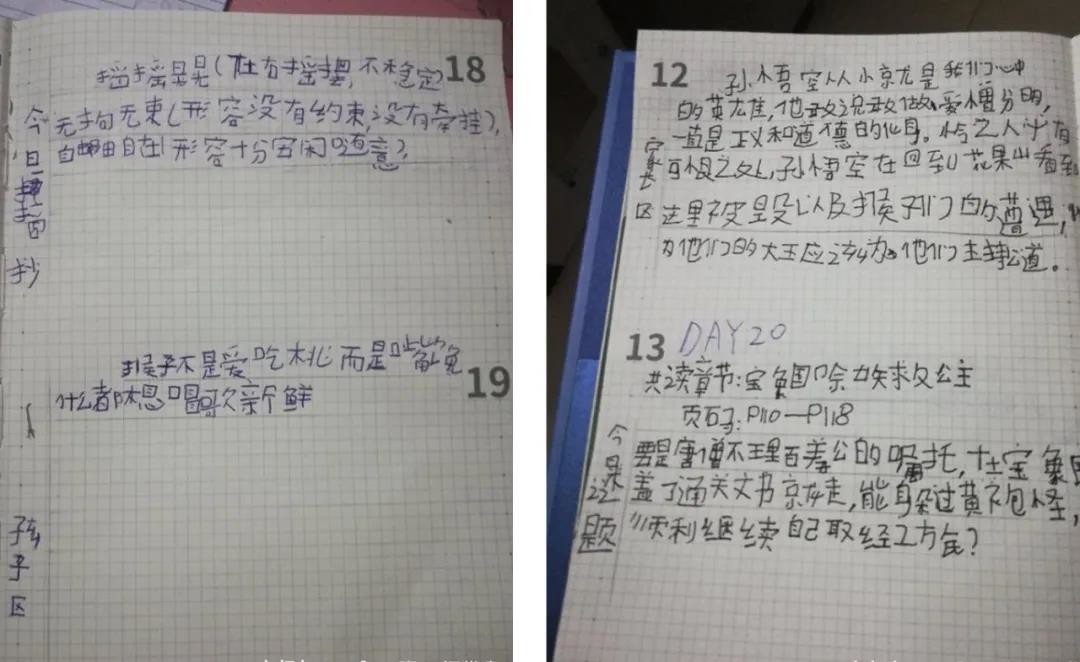 18
摇摇晃晃(左右摇摆,不稳定)
无拘无束(形容没有约束,没有牵挂),
自由自在(形容十分安闲随意),
今日摘抄
19
猴子不是爱吃桃而是
什么都想尝个新鲜
孩子区
12
孙悟空从小就是我们心中
的英雄,他敢说敢做,爱憎分明,
一直是正义和道德的化身。
可恨之处,孙悟空在回到花果山看到
这里被毁以及猴子们的遭遇,
为他们的大王应该为他们主持公道。
家长区
13
DAY20
共读章节:宝象国除妖救公主
页码:P110—P118
要是唐僧不理百花公的嘱托,在宝象国
盖了通关文书就走,能躲过黄袍怪,
顺利继续自己取经之方向?
今日录
话题